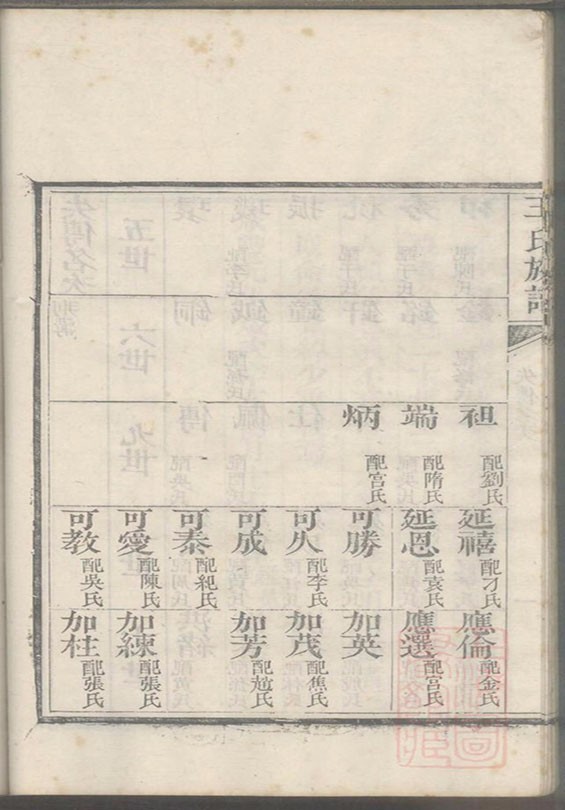 王氏族譜
袒 配劉氏
端 配隋氏
炳 配宮氏
延禧 配刁氏
延恩 配袁氏
可勝
可久 配李氏
可成
可泰 配紀氏
可愛 配陳氏
可教 配吳氏
應倫 配金氏
應選 配宮氏
加英
加茂 配焦氏
加芳 配趙氏
加練 配張氏
加柱 配張氏